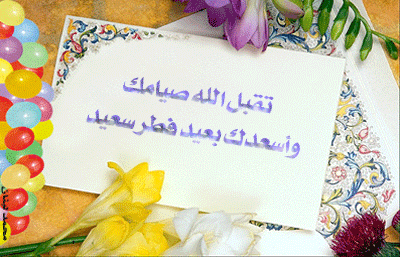 تقبل الله صيامك
وأسعدك بعيد فطر سعيد